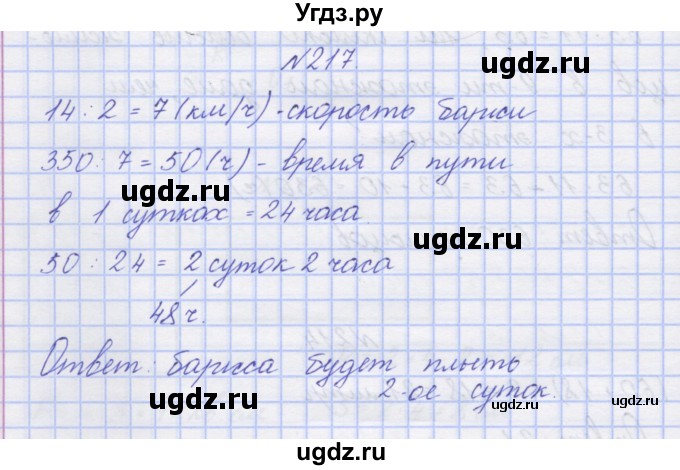 Угдз.ру
№217.
14 : 2 = 7 (км/ч) - скорость баржи
350 : 7 = 50 (ч) - время в пути
ugdz.ru ugdz.ru
в 1 сутках = 24 часа.
ugdz.ru
50 : 24 = 2 суток 2 часа
48 ч.
ugdz.ru ugdz.ru
Ответ: баржа будет плыть
2-ое суток.
ugdz.ru
ugdz.ru
ugdz.ru